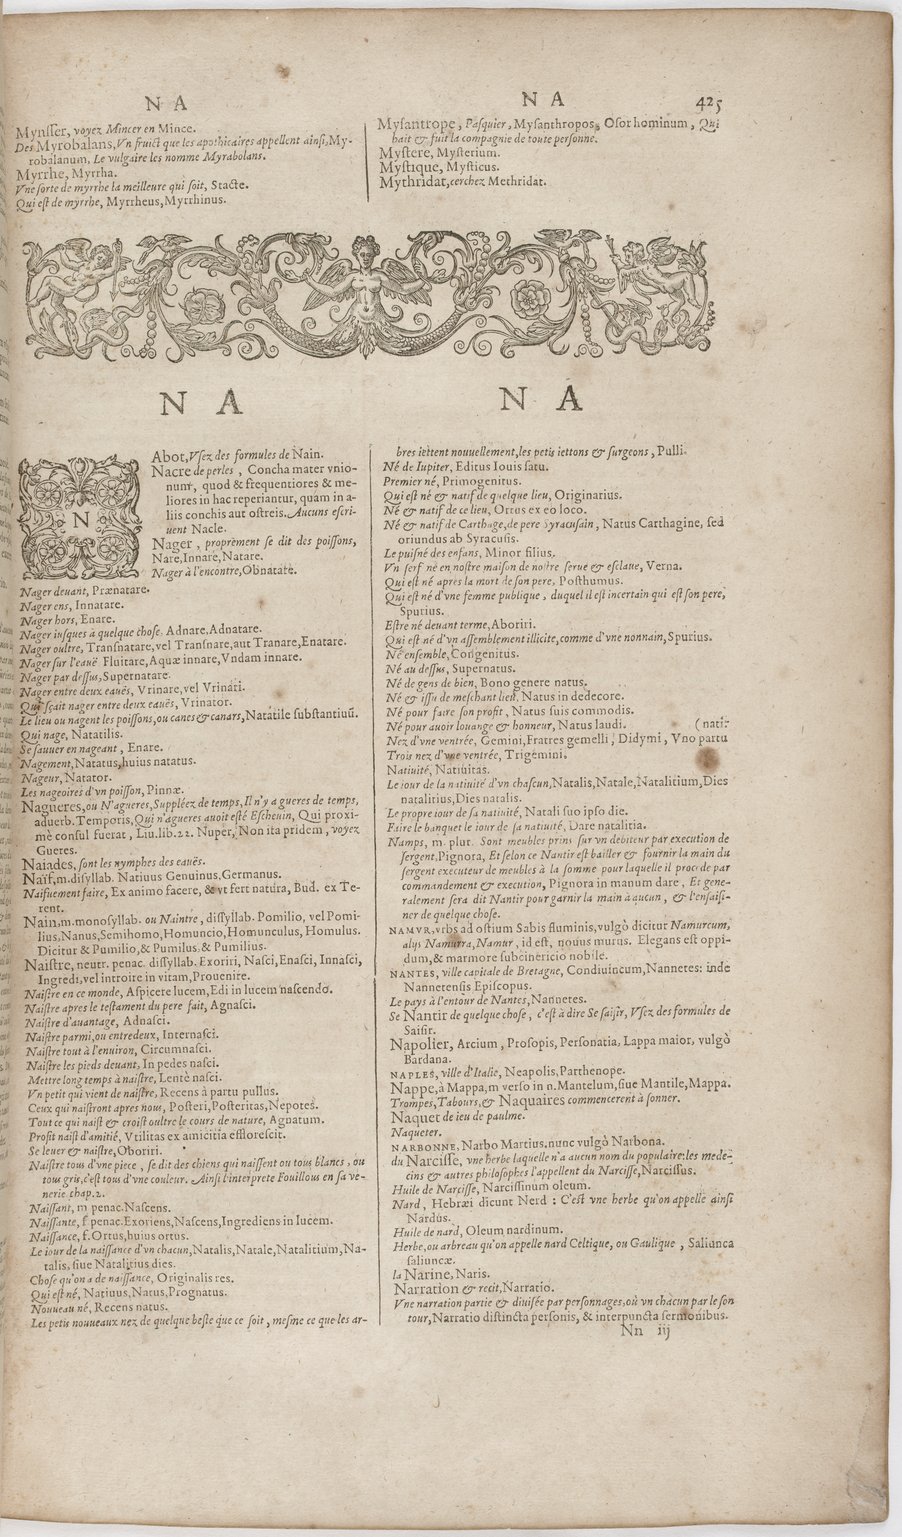 N A
Mynsser, voyez Mincer en Mince.
Des Myrobalans, Vn fruict que les apothicaires appellent ainsi, My-
robalanum, Le vulgaire les nomme Myrabolans.
Myrrhe, Myrrha.
Vne sorte de myrrhe la meilleure qui soit, Stacte.
Qui est de myrrhe, Myrrheus, Myrrhinus.
N A 425
Mysantrope, Pasquier, Mysanthropos, Osor hominum, Qui
hait & fuit la compagnie de toute personne.
Mystere, Mysterium.
Mystique, Mysticus.
Mythridat, cerchez Methridat.
N A
N
Abot, Vsez des formules de Nain.
Nacre de perles, Concha mater vnio-
num, quod & frequentiores & me-
liores in hac reperiantur, quam in a-
liis conchis aut ostreis. Aucuns escri-
uent Nacle.
Nager, proprement se dit des poissons,
Nare, Innare, Natare.
Nager à l'encontre, Obnatare.
Nager deuant, Prænatare.
Nager ens, Innatare.
Nager hors, Enare.
Nager iusques à quelque chose. Adnare, Adnatare.
Nager oultre, Transnatare, vel Transnare, aut Tranare, Enatare.
Nager sur l'eauë Fluitare, Aquæ innare, Vndam innare.
Nager par dessus, Supernatare.
Nager entre deux eauës, Vrinare, vel Vrinari.
Qui sçait nager entre deux eauës, Vrinator.
Le lieu ou nagent les poissons, ou canes & canars, Natatile substantiuũ.
Qui nage, Natatilis.
Se sauuer en nageant, Enare.
Nagement, Natatus, huius natatus.
Nageur, Natator.
Les nageoires d'vn poisson, Pinnæ.
Nagueres, ou N'agueres, Suppléez de temps, Il n'y a gueres de temps,
aduerb. Temporis, Qui n'agueres auoit esté Escheuin, Qui proxi-
mè consul fuerat, Liu. lib. 22. Nuper, Non ita pridem, voyez
Gueres.
Naiades, sont les nymphes des eauës.
Naïf, m. disyllab. Natiuus Genuinus, Germanus.
Naifuement faire, Ex animo facere, & vt fert natura, Bud. ex Te-
rent.
Nain, m. monosyllab. ou Naintre, dissyllab. Pomilio, vel Pomi-
lius, Nanus, Semihomo, Homuncio, Homunculus, Homulus.
Dicitur & Pumilio, & Pumilus, & Pumilius.
Naistre, neutr. penac. dissyllab. Exoriri, Nasci, Enasci, Innasci,
Ingredi, vel introire in vitam, Prouenire.
Naistre en ce monde, Aspicere lucem, Edi in lucem nascendo.
Naistre apres le testament du pere fait, Agnasci.
Naistre d'auantage, Adnasci.
Naistre parmi, ou entredeux, Internasci.
Naistre tout à l'enuiron, Circumnasci.
Naistre les pieds deuant, In pedes nasci.
Mettre long temps à naistre, Lentè nasci.
Vn petit qui vient de naistre, Recens à partu pullus.
Ceux qui naistront apres nous, Posteri, Posteritas, Nepotes.
Tout ce qui naist & croist oultre le cours de nature, Agnatum.
Profit naist d'amitié, Vtilitas ex amicitia efflorescit.
Se leuer & naistre, Oboriri.
Naistre tous d'vne piece, se dit des chiens qui naissent ou tous blancs, ou
tous gris, c'est tous d'vne couleur. Ainsi l'interprete Fouillous en sa ve-
nerie chap. 2.
Naissant, m penac. Nascens.
Naissante, f penac. Exoriens, Nascens, Ingrediens in lucem.
Naissance, f. Ortus, huius ortus.
Le iour de la naissance d'vn chacun, Natalis, Natale, Natalitium, Na-
talis, siue Natalitius dies.
Chose qu'on a de naissance, Originalis res.
Qui est né, Natiuus, Natus, Prognatus.
Nouueau né, Recens natus.
Les petis nouueaux nez de quelque beste que ce soit, mesme ce que les ar-
N A
bres iettent nouuellement, les petis iettons & surgeons, Pulli.
Né de Iupiter, Editus Iouis satu.
Premier né, Primogenitus.
Qui est né & natif de quelque lieu, Originarius.
Né & natif de ce lieu, Ortus ex eo loco.
Né & natif de Carthage, de pere Syracusain, Natus Carthagine, sed
oriundus ab Syracusis.
Le puisné des enfans, Minor filius.
Vn serf né en nostre maison de nostre serue & esclaue, Verna.
Qui est né apres la mort de son pere, Posthumus.
Qui est né d'vne femme publique, duquel il est incertain qui est son pere,
Spurius.
Estre né deuant terme, Aboriri.
Qui est né d'vn assemblement illicite, comme d'vne nonnain, Spurius.
Né ensemble, Congenitus.
Né au dessus, Supernatus.
Né de gens de bien, Bono genere natus.
Né & issu de meschant lieu, Natus in dedecore.
Né pour faire son profit, Natus suis commodis.
Né pour auoir louange & honneur, Natus laudi. (nati.
Nez d'vne ventrée, Gemini, Fratres gemelli, Didymi, Vno partu
Trois nez d'vne ventrée, Trigemini.
Natiuité, Natiuitas.
Le iour de la natiuité d'vn chascun, Natalis, Natale, Natalitium, Dies
natalitius, Dies natalis.
Le propre iour de sa natiuité, Natali suo ipso die.
Faire le banquet le iour de sa natiuité, Dare natalitia.
Namps, m. plur. Sont meubles prins sur vn debiteur par execution de
sergent, Pignora, Et selon ce Nantir est bailler & fournir la main du
sergent executeur de meubles à la somme pour laquelle il procede par
commandement & execution, Pignora in manum dare, Et gene-
ralement sera dit Nantir pour garnir la main à aucun, & l'ensaisi-
ner de quelque chose.
NAMVR, vrbs ad ostium Sabis fluminis, vulgò dicitur Namurcum,
alys Namurra, Namur, id est, nouus murus. Elegans est oppi-
dum, & marmore subcinericio nobile.
NANTES, ville capitale de Bretagne, Condiuincum, Nannetes: inde
Nannetensis Episcopus.
Le pays à l'entour de Nantes, Nannetes.
Se Nantir de quelque chose, c'est à dire Se saisir, Vsez des formules de
Saisir.
Napolier, Arcium, Prosopis, Personatia, Lappa maior, vulgò
Bardana.
NAPLES, ville d'Italie, Neapolis, Parthenope.
Nappe, à Mappa, m verso in n. Mantelum, siue Mantile, Mappa.
Trompes, Tabours, & Naquaires commencerent à sonner.
Naquet de ieu de paulme.
Naqueter.
NARBONNE, Narbo Martius, nunc vulgò Narbona.
du Narcisse, vne herbe laquelle n'a aucun nom du populaire: les mede-
cins & autres philosophes l'appellent du Narcisse, Narcissus.
Huile de Narcisse, Narcissinum oleum.
Nard, Hebræi dicunt Nerd: C'est vne herbe qu'on appelle ainsi
Nardus.
Huile de nard, Oleum nardinum.
Herbe, ou arbreau qu'on appelle nard Celtique, ou Gaulique, Saliunca
saliuncæ.
la Narine, Naris.
Narration & recit, Narratio.
Vne narration partie & diuisée par personnages, où vn chacun par le son
tour, Narratio distincta personis, & interpuncta sermonibus.
Nn iij